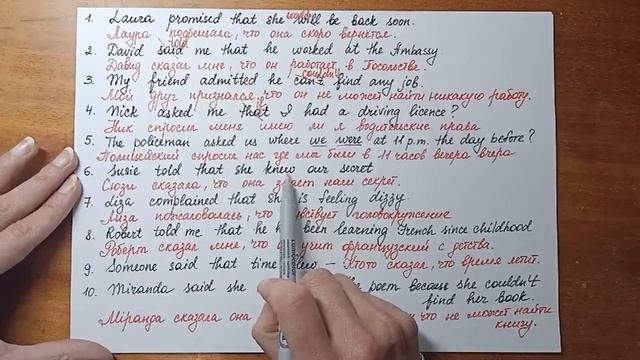 would
1. Laura promised that she will be back soon.
Лаура пообещала, что она скоро вернется.
told
2. David said me that he worked at the Embassy.
Давид сказал мне, что он работает в Посольстве.
couldn't
3. My friend admitted he can't find any job.
Мой друг признался, что он не может найти никакую работу.
if
4. Nick asked me that I had a driving licence?
Ник спросил меня имею ли я водительские права
5. The policeman asked us where we were at 11 p.m. the day before?
Полицейский спросил нас где мы были в 11 часов вечера вчера
6. Susie told that she knew our secret
Сюзи сказала, что она знает наш секрет.
7. Liza complained that she is feeling dizzy.
Лиза пожаловалась, что головокружение
8. Robert told me that he been learning French since childhood
Роберт сказал мне, что учит французский с детства.
9. Someone said that time flew – Ктото сказал, что время летит.
10. Miranda said she poem because she couldn't
find her book.
Міранда сказала она что не может найти
книгу.